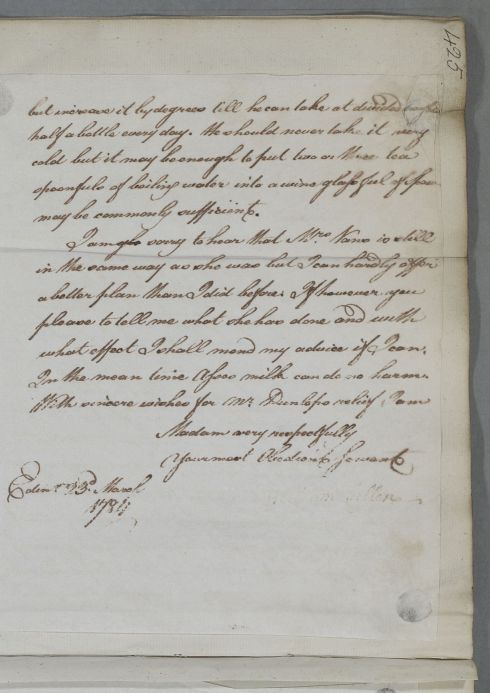 425
but increase it by degrees till he can take at divided
half a bottle every day. He should never take it very
cold but it may be enough to put two or three tea
spoonfuls of boiling water into a wine glass ful of
may be commonly sufficient.
I am also sorry to hear that Mrs. Vans is still
in the same way as she was but I can hardly offer
a better plan than I did before. If however you
please to tell me what she has done and with
what effect I shall mend my advice if I can.
In the mean time Asses milk can do no harm.
With sincere wishes for Mr. Dunlops relief I am
Madam very respectfully
Your most Obedient Servant
William Cullen
Edinr. 23d. March
1784